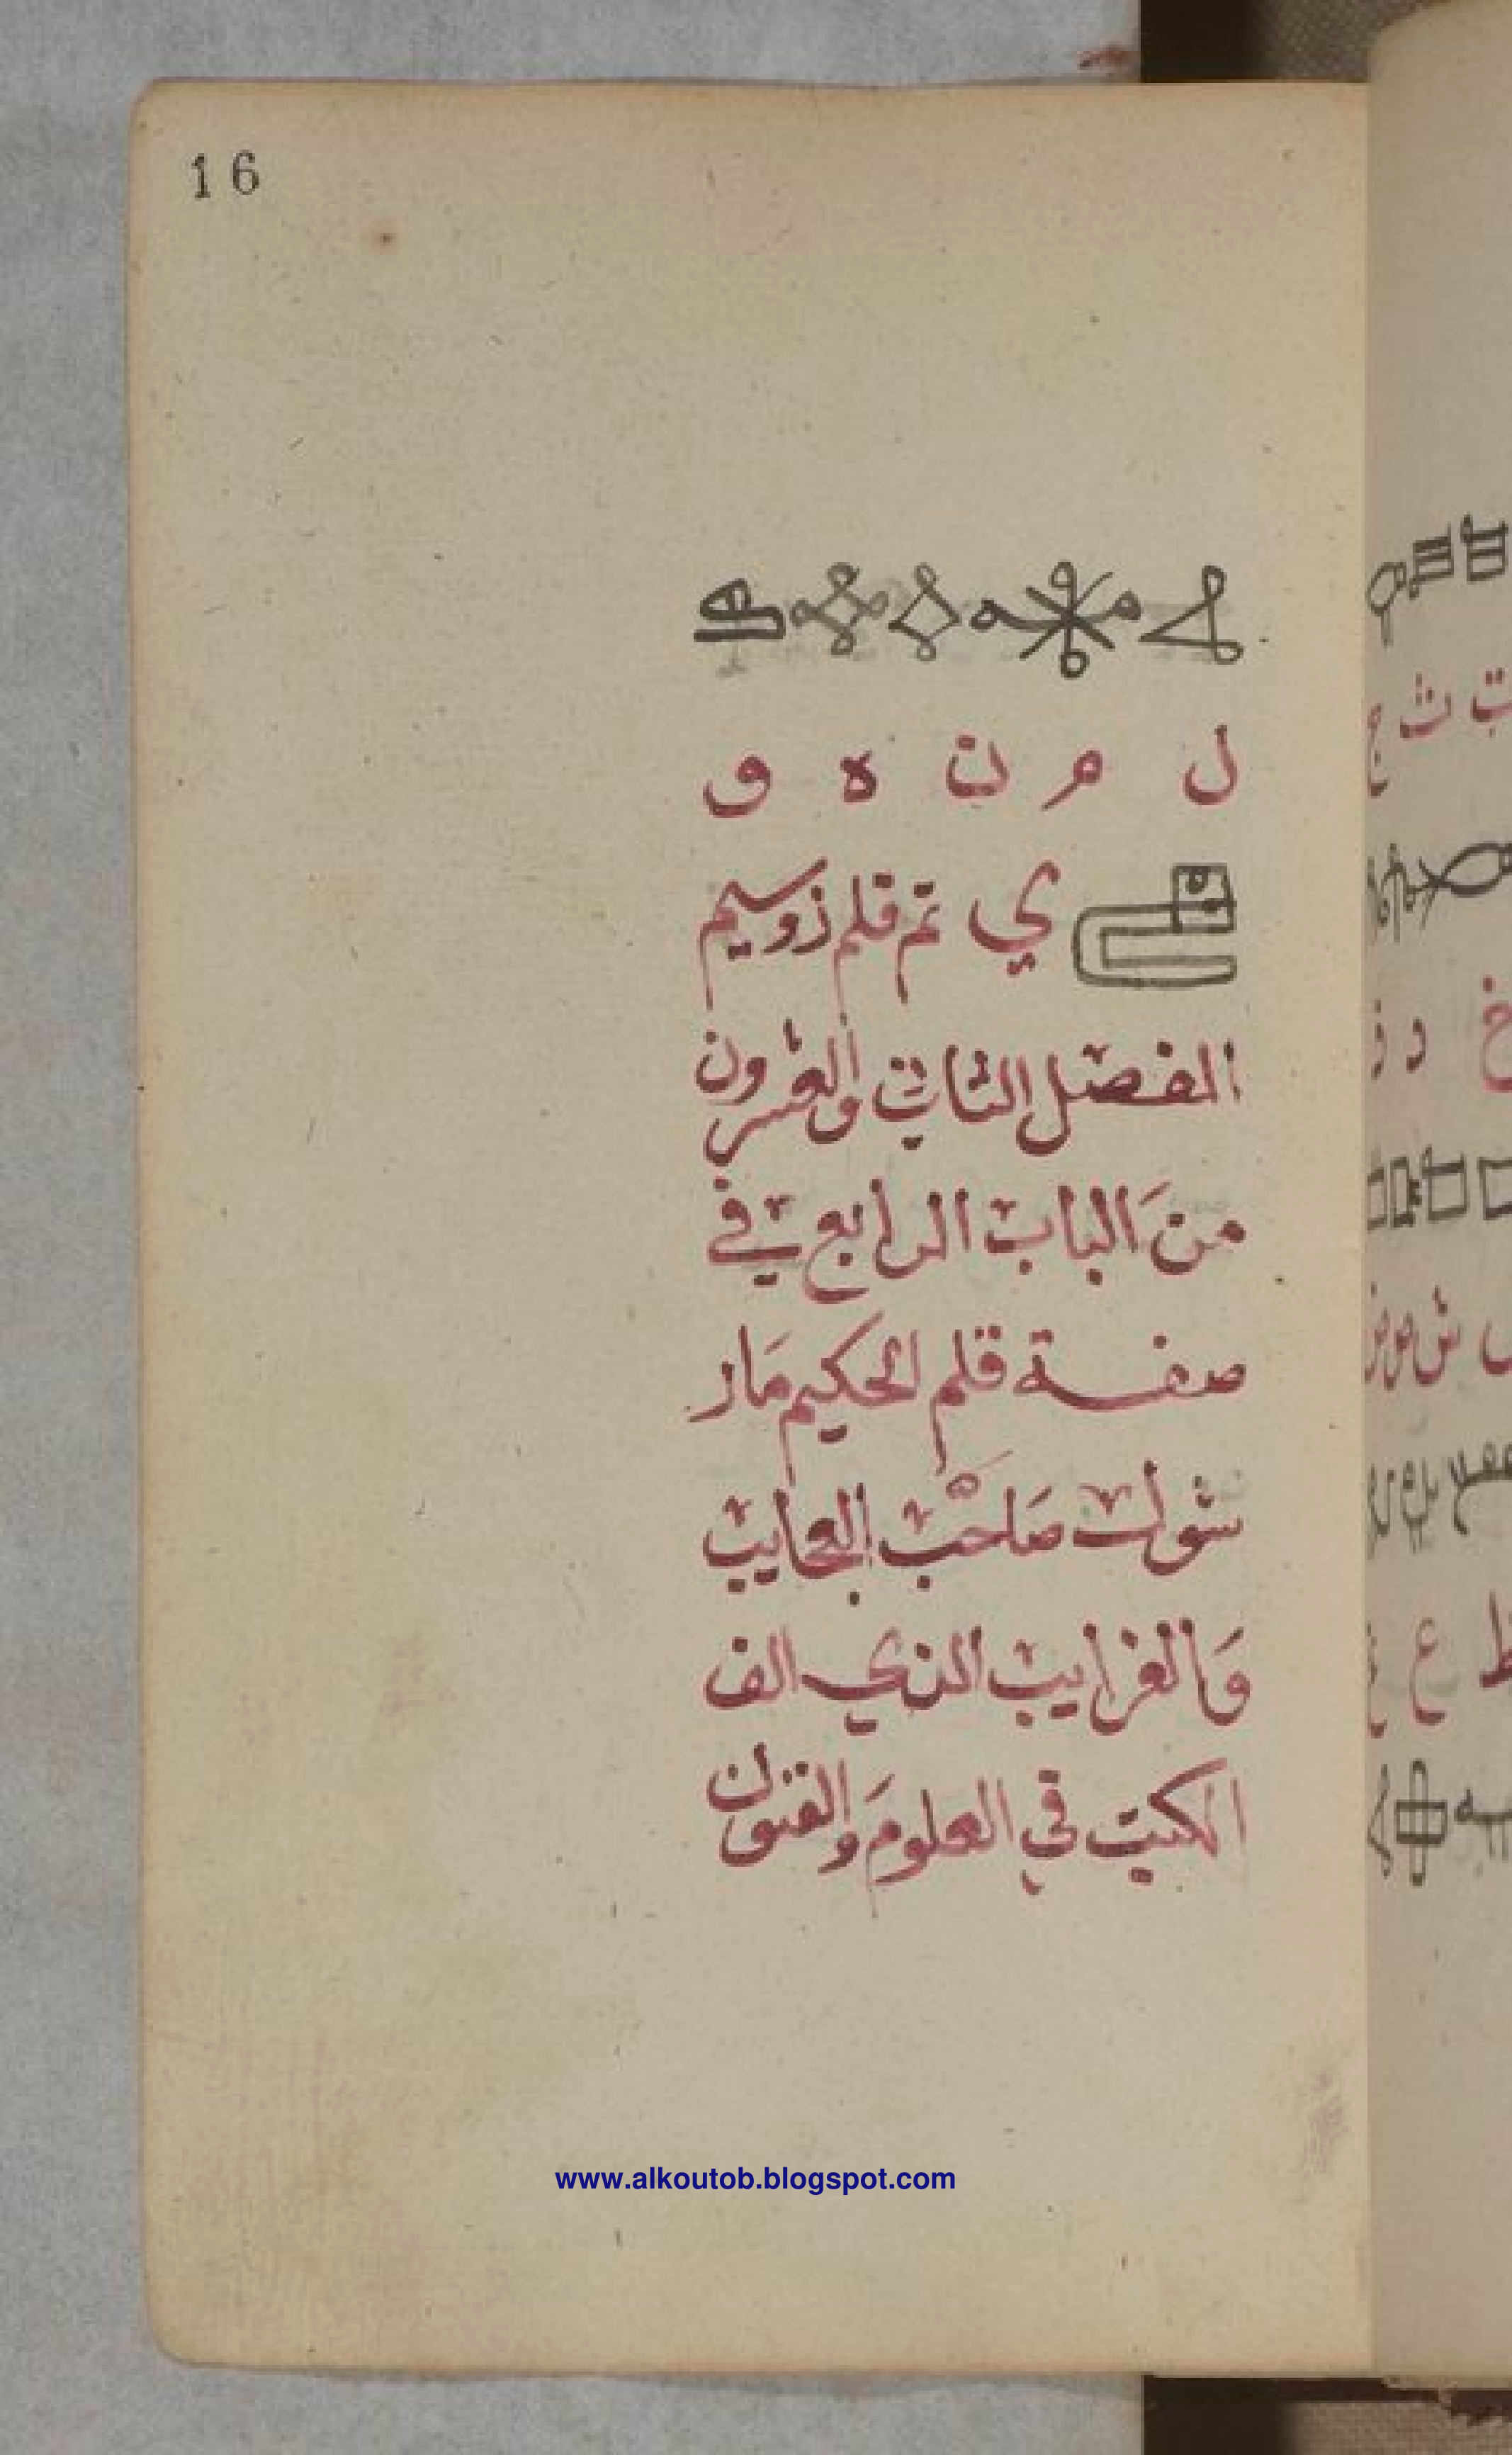 16
ل م ن ه و
ي تم قلم زوسيم
الفصل الثاني والعشرون
من الباب الرابع في
صفة قلم الحكيم مار
شول صاحب العجايب
وَالغرايب الذي الف
الكتب في العلوم والفنون
www.alkoutob.blogspot.com